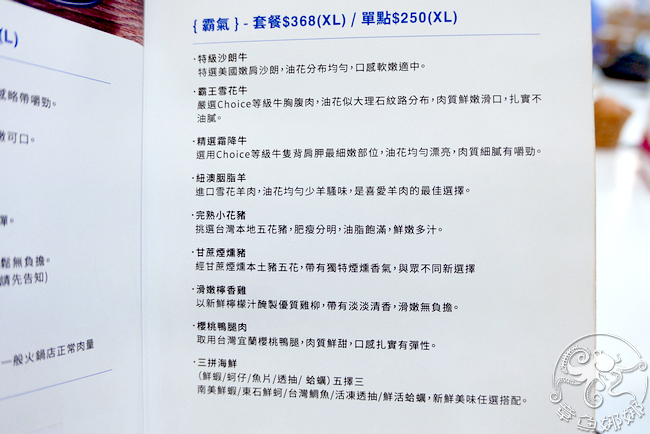 L)
感略帶嚼勁。
嫩可口。
彈。
鬆無負擔。
請先告知)
一般火鍋店正常肉量
{ 霸氣 } - 套餐$368(XL) / 單點$250(XL)
·特級沙朗牛
特選美國嫩肩沙朗,油花分布均勻,口感軟嫩適中。
·霸王雪花牛
嚴選Choice等級牛胸腹肉,油花似大理石紋路分布,肉質鮮嫩滑口,扎實不
油膩。
·精選霜降牛
選用Choice等級牛隻背肩胛最細嫩部位,油花均勻漂亮,肉質細膩有嚼勁。
·紐澳胭脂羊
進口雪花羊肉,油花均勻少羊騷味,是喜愛羊肉的最佳選擇。
·完熟小花豬
挑選台灣本地五花豬,肥瘦分明,油脂飽滿,鮮嫩多汁。
·甘蔗煙燻豬
經甘蔗煙燻本土豬五花,帶有獨特煙燻香氣,與眾不同新選擇
·滑嫩檸香雞
以新鮮檸檬汁醃製優質雞柳,帶有淡淡清香,滑嫩無負擔。
·櫻桃鴨腿肉
取用台灣宜蘭櫻桃鴨腿,肉質鮮甜,口感扎實有彈性。
·三拼海鮮
(鮮蝦/蚵仔/魚片/透抽/ 蛤蠣) 五擇三
南美鮮蝦/東石鮮蚵/台灣鯛魚/活凍透抽/鮮活蛤蠣,新鮮美味任選搭配。